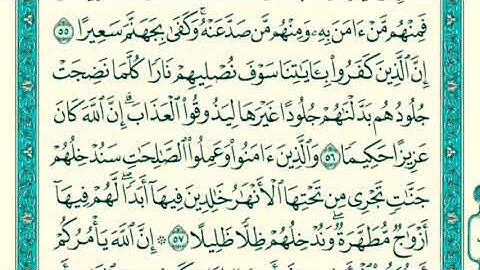 فَمِنْهُم مَّنْ ءَامَنَ بِهِۦ وَمِنْهُم مَّن صَدَّ عَنْهُ ۚ وَكَفَىٰ بِجَهَنَّمَ سَعِيرًا ٥٥
إِنَّ ٱلَّذِينَ كَفَرُوا۟ بِـَٔايَـٰتِنَا سَوْفَ نُصْلِيهِمْ نَارًا كُلَّمَا نَضِجَتْ
جُلُودُهُم بَدَّلْنَـٰهُمْ جُلُودًا غَيْرَهَا لِيَذُوقُوا۟ ٱلْعَذَابَ ۗ إِنَّ ٱللَّهَ كَانَ
عَزِيزًا حَكِيمًا ٥٦ وَٱلَّذِينَ ءَامَنُوا۟ وَعَمِلُوا۟ ٱلصَّـٰلِحَـٰتِ سَنُدْخِلُهُمْ
جَنَّـٰتٍ تَجْرِى مِن تَحْتِهَا ٱلْأَنْهَـٰرُ خَـٰلِدِينَ فِيهَآ أَبَدًا ۖ لَّهُمْ فِيهَآ
أَزْوَٰجٌ مُّطَهَّرَةٌ ۖ وَنُدْخِلُهُمْ ظِلًّا ظَلِيلًا ٥٧ ۞ إِنَّ ٱللَّهَ يَأْمُرُكُمْ